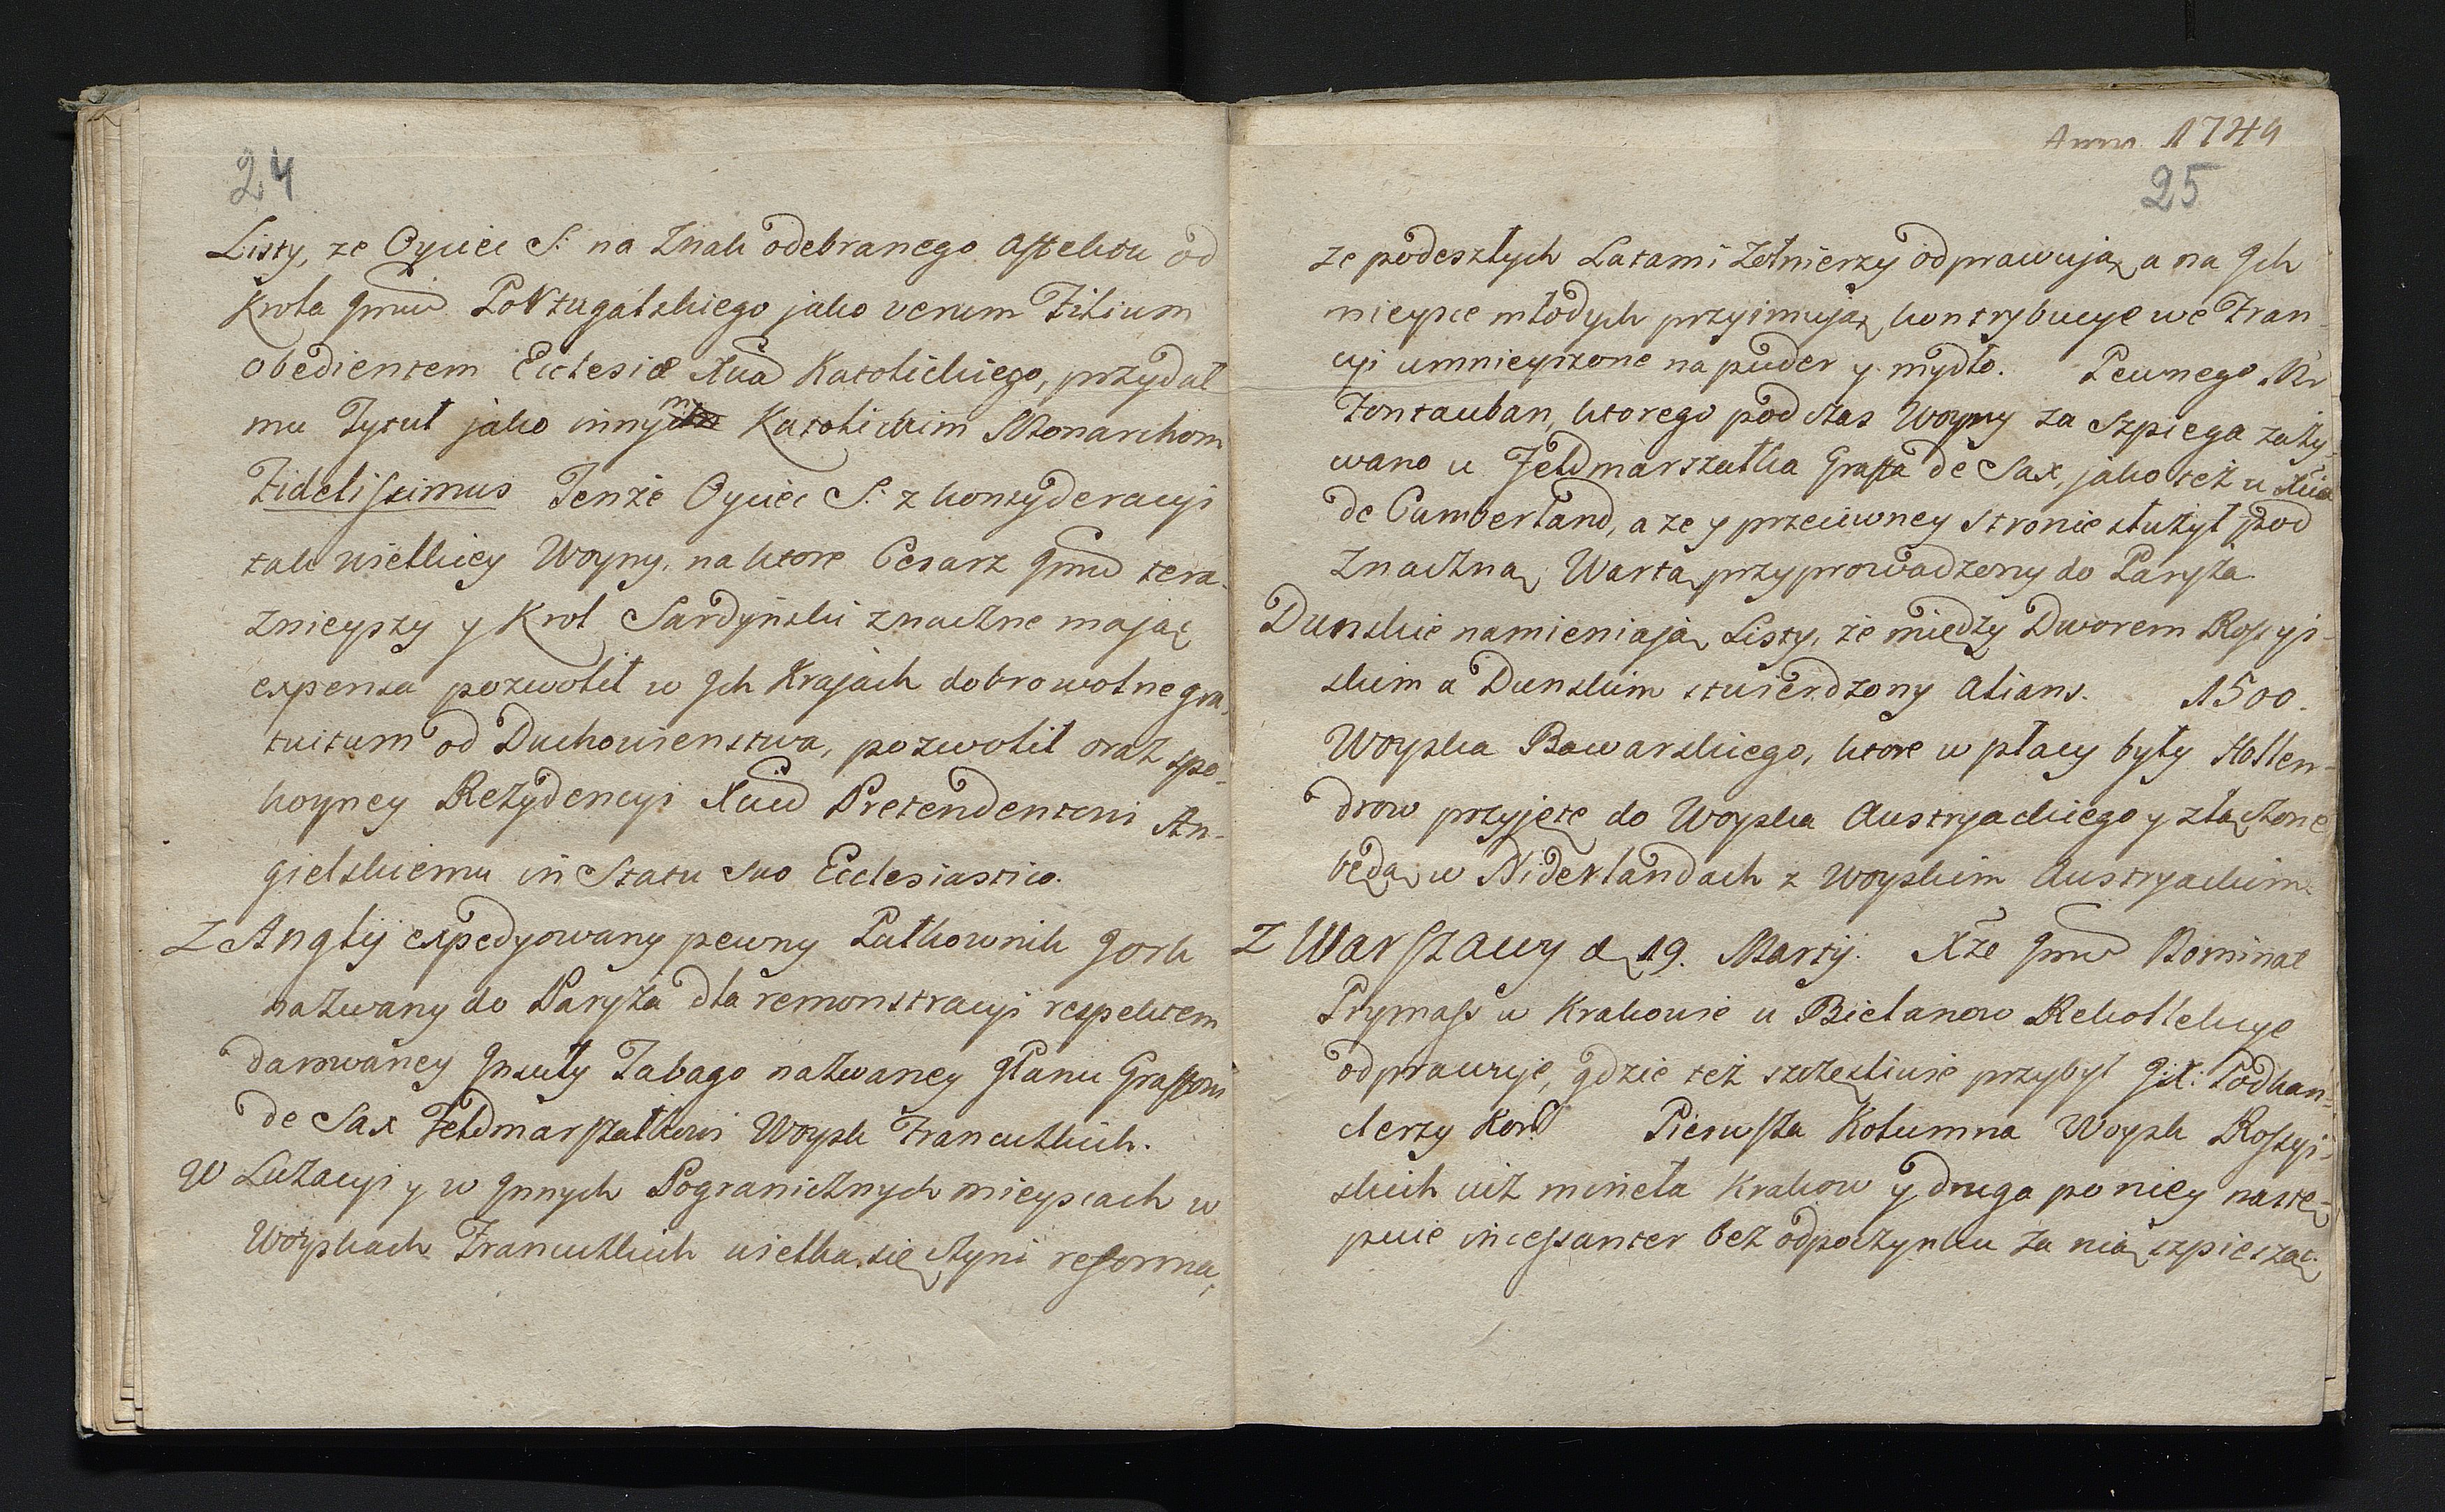 24
Listy, ze Oyciec S: na Znak odebranego affektu od
Krola Jmci Portugalskiego jako verum Filium
obedientem Ecclesiæ Xcia Katolickiego, przydał
mu Tytuł jako innym Katolickim Monarchom
Fidelissimus Tenże Oyciec S: z konsyderacyi
tak wielkiey Woyny, na ktore Cesarz Jmć tera-
znieyszy y Krol Sardyński znaczne mając
expensa pozwolił w Jch Krajach dobrowolne gra-
tuitum od Duchowienstwa, pozwolił oraz spo-
koyney Rezydencyi Xciu Pretendentowi An-
gielskiemu in Statu suo Ecclesiastico.
Z Anglij expedyowany pewny Pułkownik Jork
nazwany do Paryża dla remonstracyi respektem
darowaney Jnsuły Tabago nazwaney Panu Graffowi
de Sax Feldmarszałkowi Woysk Francuzkich.
W Luzacyi y w Jnnych Pogranicznych mieyscach w
Woyskach Francuzkich wielka się czyni reforma,
Anno 1749
25
ze podeszłych Latami Zołnierzy odprawują, a na Jch
mieysce młodych przyimują, kontrybucye we Fran-
cyi umnieyszone na puder y mydło. Pewnego Mr
Tontauban, ktorego pod czas Woyny za Szpiega zaży-
wano u Feldmarszałka Graffa de Sax, jako też u Xcia
de Cumberland, a ze y przeciwney stronie służył pod
Znaczną Wartą przyprowadzony do Paryża.
Dunskie namieniają Listy, że między Dworem Rossyi-
skim a Dunskim stwierdzony Alians. 1500.
Woyska Bawarskiego, ktore w płacy były Hollen-
drow przyjęte do Woyska Austryackiego y złączone
będą w Niderlandach z Woyskim Austryackim.
Z Warszawy d 19. Martij. Xże Jmć Nominat
Prymass w Krakowie u Bielanow Rekollekcye
odprawuje, gdzie też szczęsliwie przybył Jit: Podkan-
clerzy Kor: Pierwsza Kolumna Woysk Rossyi-
skich już minęła Krakow y druga po niey nastę-
puie incessanter bez odpoczynku za nią szpiesząc.